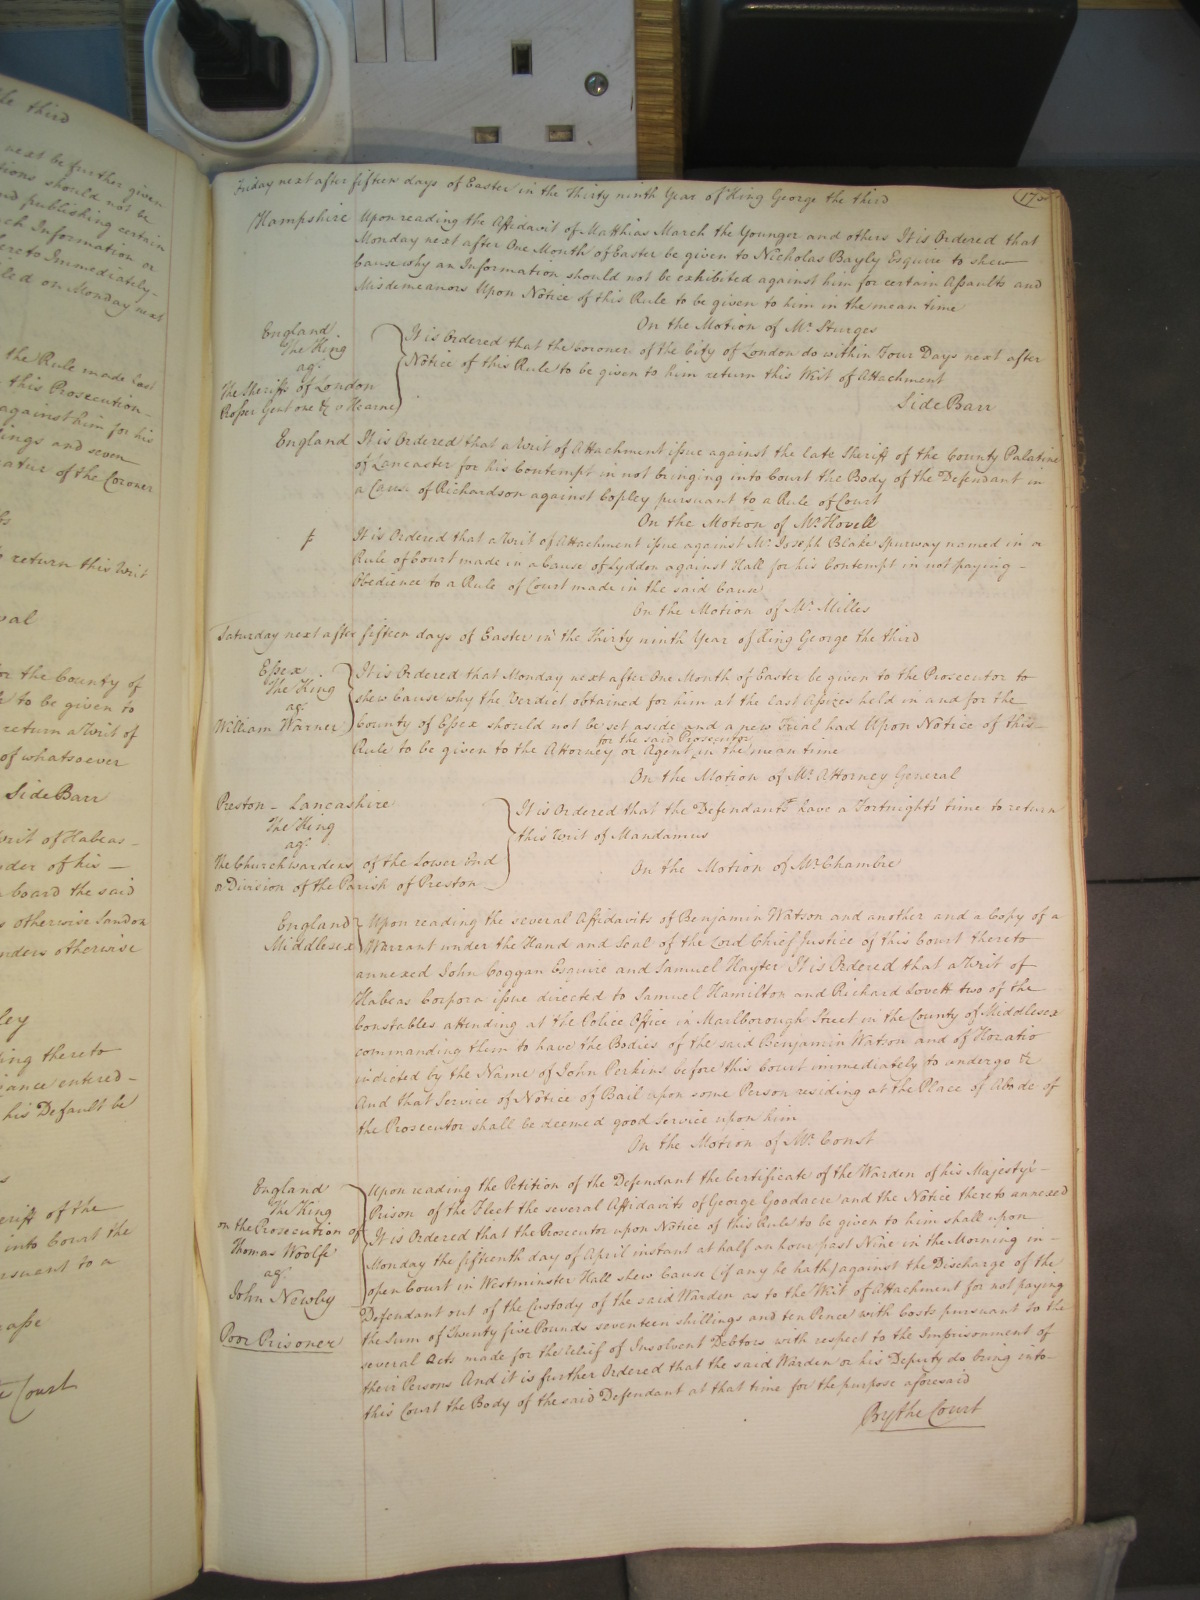 Friday next after fifteen days of Easter in the Thirty ninth Year of King George the third
Hampshire Upon reading the Affidavit of Matthias March the Younger and others It is Ordered that
Monday next after One Month of Easter be given to Nicholas Bayly Esquire to shew
Cause why an Information should not be exhibited against him for certain Assaults and
Misdemeanors Upon Notice of this Rule to be given to him in the mean time
On the Motion of Mr. Sturges
England
The King
agt.
The Sheriff of London
Prosser Gent one &c v Hearne
It is Ordered that the Coroner of the City of London do within Four Days next after
Notice of this Rule to be given to him return this Writ of Attachment
Side Barr
England It is Ordered that a Writ of Attachment issue against the late Sheriff of the County Palatine
of Lancaster for his Contempt in not bringing into Court the Body of the Defendant in
a Cause of Richardson against Copley pursuant to a Rule of Court
On the Motion of Mr. Hovell
It is Ordered that a Writ of Attachment issue against Mr. Joseph Blake Spurway named in a
Rule of Court made in a Cause of Lyddon against Hall for his Contempt in not paying
Obedience to a Rule of Court made in the said Cause
On the Motion of Mr. Milles
Saturday next after fifteen days of Easter in the Thirty ninth Year of King George the third
Essex
The King
agt.
William Warner
It is Ordered that Monday next after One Month of Easter be given to the Prosecutor to
shew Cause why the Verdict obtained for him at the last Assizes held in and for the
County of Essex should not be set aside and a new Trial had Upon Notice of this
for the said Prosecutor
Rule to be given to the Attorney or Agent in the mean time
On the Motion of Mr. Attorney General
Preston - Lancashire
The King
agt.
The Churchwardens of the Lower End
or Division of the Parish of Preston
It is Ordered that the Defendants have a Fortnight's time to return
this Writ of Mandamus
On the Motion of Mr. Chambre
England
Middlesex
Upon reading the several Affidavits of Benjamin Watson and another and a Copy of a
Warrant under the Hand and Seal of the Lord Chief Justice of this Court thereto
annexed John Coggan Esquire and Samuel Hayter It is Ordered that a Writ of
Habeas Corpora issue directed to Samuel Hamilton and Richard Lovett two of the
Constables attending at the Police Office in Marlborough Street in the County of Middlesex
commanding them to have the Bodies of the said Benjamin Watson and of Horatio
indicted by the Name of John Perkins before this Court immediately to undergo &c
And that Service of Notice of Bail upon some Person residing at the Place of Abode of
the Prosecutor shall be deemed good Service upon him
On the Motion of Mr. Const
England
The King
on the Prosecution of
Thomas Woolfe
agt.
John Newby
Poor Prisoner
Upon reading the Petition of the Defendant the Certificate of the Warden of his Majesty's
Prison of the Fleet the several Affidavits of George Goodacre and the Notice thereto annexed
It is Ordered that the Prosecutor upon Notice of this Rule to be given to him shall upon
Monday the fifteenth day of April instant at half an hour past Nine in the Morning in
open Court in Westminster Hall shew Cause (if any he hath) against the Discharge of the
Defendant out of the Custody of the said Warden as to the Writ of Attachment for not paying
the Sum of Twenty five Pounds seventeen shillings and ten Pence with Costs pursuant to the
several Acts made for the relief of Insolvent Debtors with respect to the Imprisonment of
their Persons And it is further Ordered that the said Warden or his Deputy do bring into
this Court the Body of the said Defendant at that time for the purpose aforesaid
By the Court
the third
next be further given
should not be
and publishing certain
Information or
thereto Immediately
on Monday next
the Rule made last
this Prosecution
against him for his
and seven
of the Coroner
return this Writ
or the County of
to be given to
return a Writ of
of whatsoever
Side Barr
Writ of Habeas
of his
board the said
otherwise London
otherwise
thereto
entered
his Default be
of the
into Court the
to a
Court